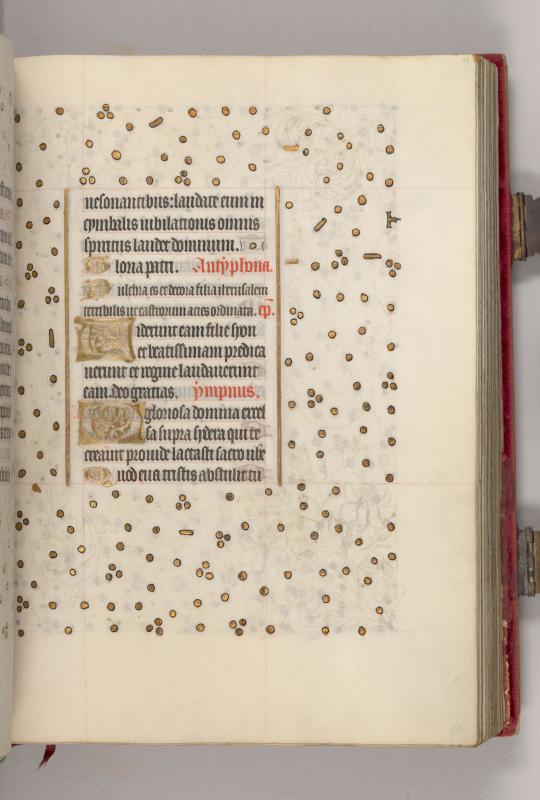 nesonantibus: laudate eum in
cymbalis iubilationis omnis
spiritus laudet dominum.
Gloria patri. Antyphona.
Pulchra es et decora filia iherusalem
terribilis ut castrorum acies ordinata. cp̄.
Viderunt eam filie syon
et beatissimam predica
uerunt et regine laudauerunt
eam. deo gratias. ympnus.
O gloriosa domina excel
sa supra sydera qui te
creauit prouide lactasti sacro ube
Quod eua tristis abstulit tu